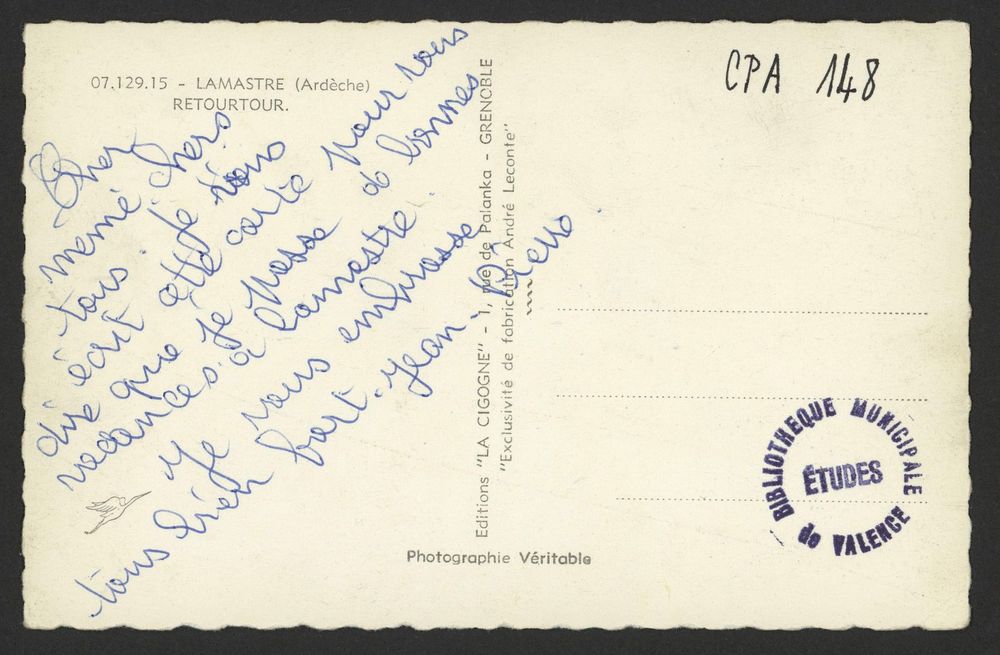 07.129.15 - LAMASTRE (Ardèche)
RETOURTOUR.
CPA 148
Cher
mémé chers
tous. Je vous
écrit cette carte pour vous
dire que je passe de bonnes
vacances. à Lamastre.
Je vous embrasse
tous bien fort. Jean-Pierre
Editions "LA CIGOGNE" - 1, rue de Palanka - GRENOBLE
"Exclusivité de fabrication André Leconte"
Photographie Véritable
BIBLIOTHEQUE MUNICIPALE
ÉTUDES
de VALENCE